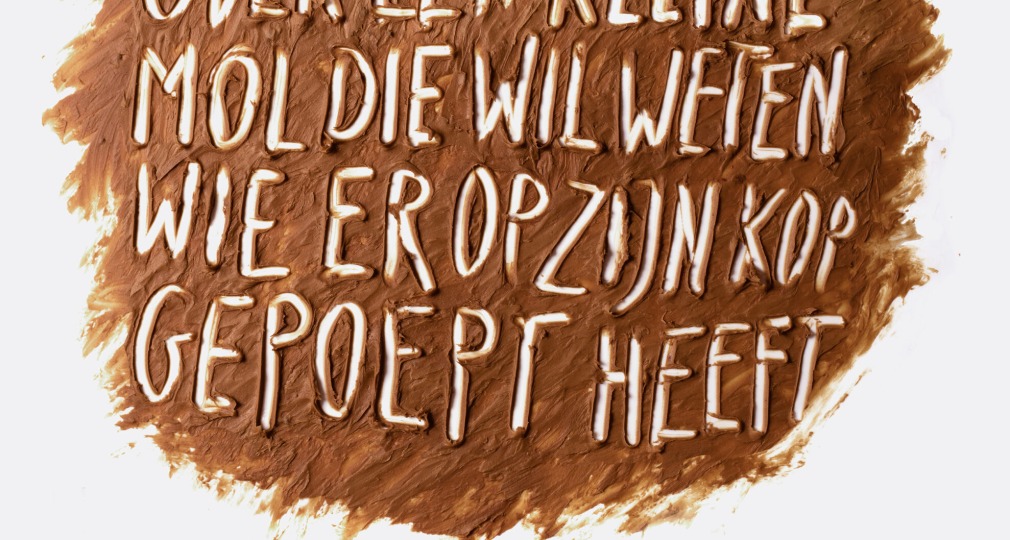 OVER EEN KLEINE
MOL DIE WIL WETEN
WIE ER OP ZIJN KOP
GEPOEPT HEEFT